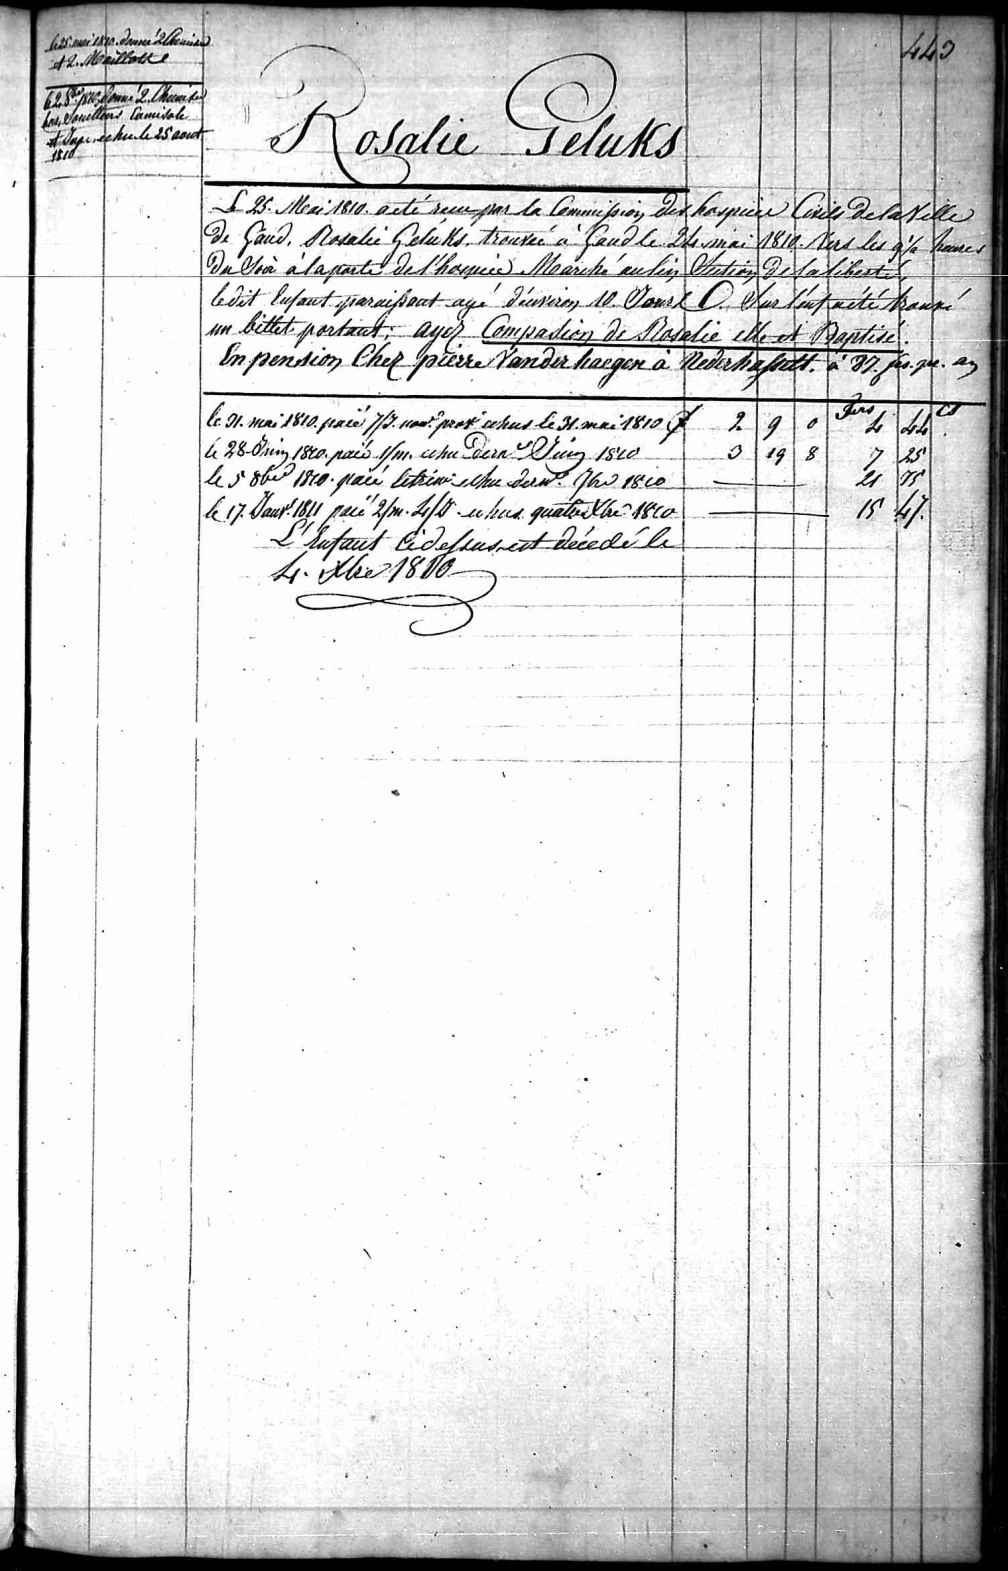 443
le 25 mai 1810. donné 2 Chemises
et 2. Maillotte
le 2. 8bre 1810. donné 2. Chemise
bas, Souilliers Camisole
et Jupe echu le 25 aout
1810
Rosalie Geluks
Le 25. Mai 1810. a eté recu par la Commission des hospices Civils de la Ville
de Gand, Rosalie Geluks, trouvée à Gand le 24 mai 1810. vers les 9½ heures
du Soir à la porte de l'hospice Marché au lin, Section de la liberté,
ledit Enfant paroissant agé d'environ 10. Jours. Sur l'enft a été trouvé
un billet portant: ayez Compasion de Rosalie elle et Baptisé.
En pension Chez pierre Vanderhaegen à Nederhasselt. à 87. frs. pr. an
frs Cs
le 31. mai 1810. paié 7/J. nouv. prov. echus le 31. mai 1810 f 2 9 0 4 44.
le 28 Juin 1810. paié 1/m. echu dernr Juin 1810 3 19 8 7 25
le 5 8bre 1810. paié letrim echu dernr. 7bre 1810 21 75
le 17. Janvr 1811 paié 2/m. 4/J echus quatre Xbre 1810 15 47.
L'Enfant cidessus est décedé le
4. Xbre 1810